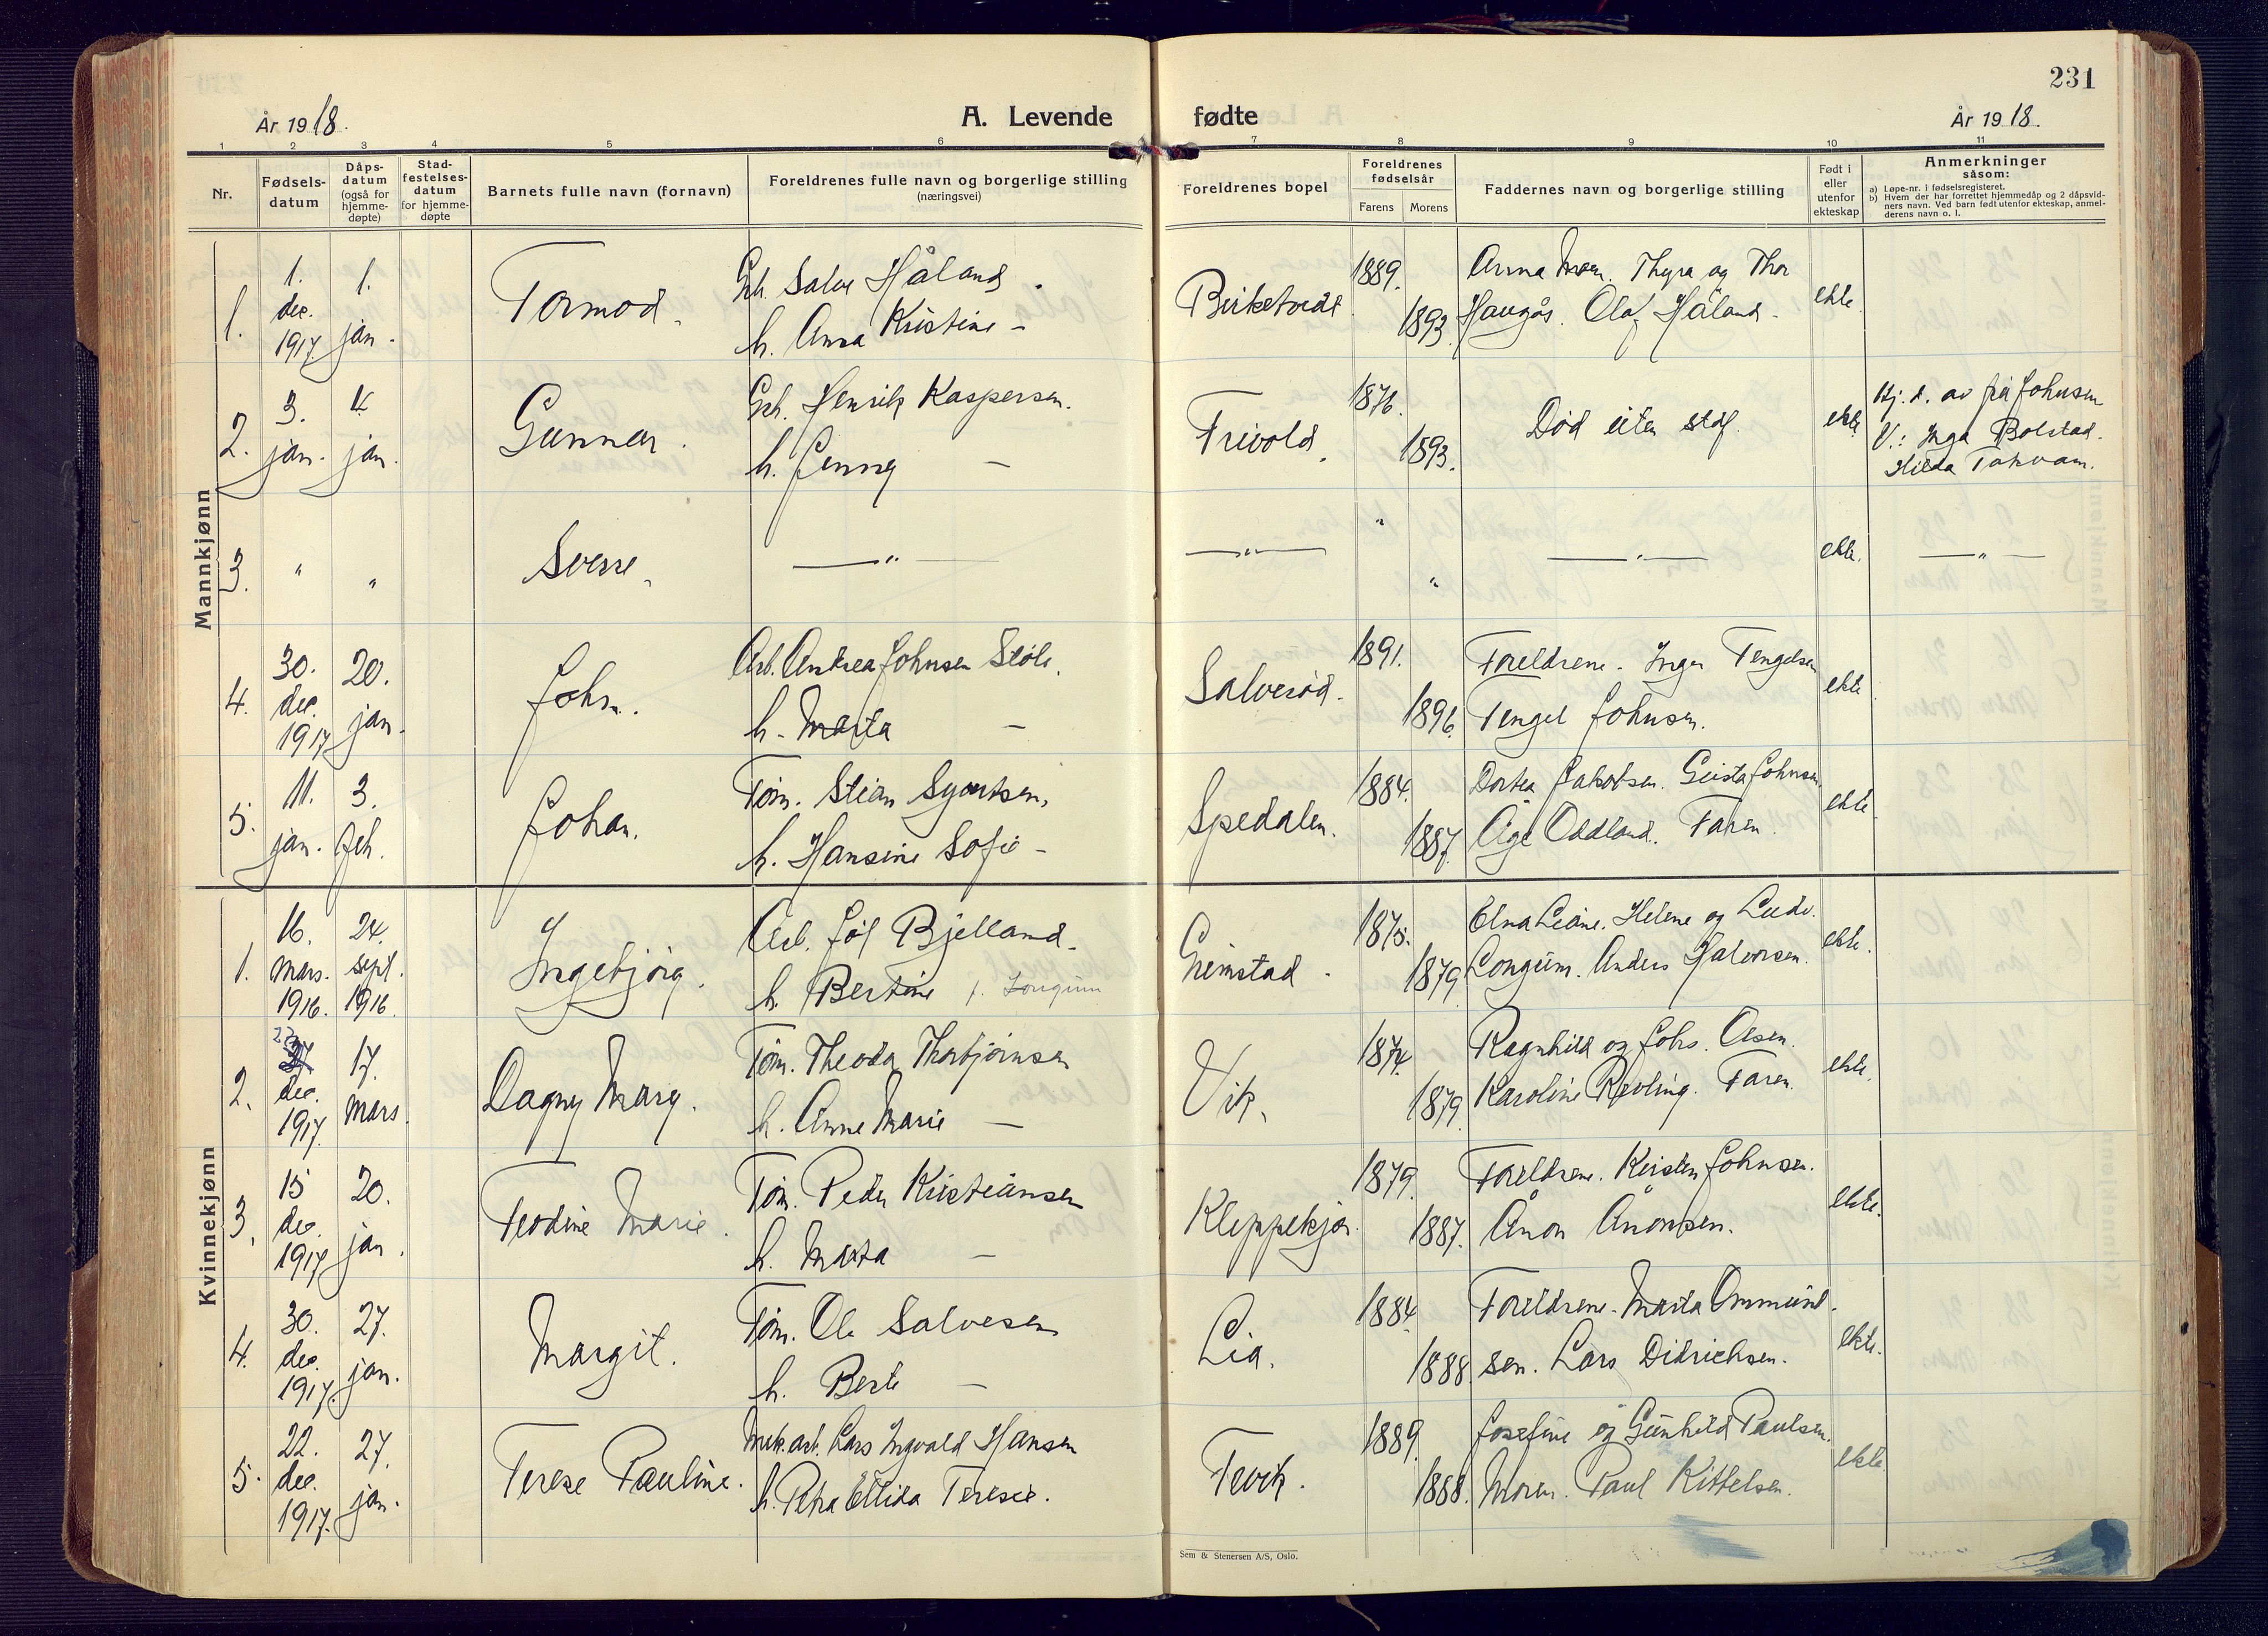 231
År 1918.
A. Levende fødte
År 1918.
1 2 3 4 5 6 7 8 9 10 11
Nr.
Fødsels-
datum
Dåps-
datum
(også for
hjemme-
døpte)
Stad-
festelses-
datum
for hjemme-
døpte
Barnets fulle navn (fornavn)
Foreldrenes fulle navn og borgerlige stilling
(næringsvei)
Foreldrenes bopel
Foreldrenes
fødselsår
Farens Morens
Faddernes navn og borgerlige stilling
Født i
eller
utenfor
ekteskap
Anmerkninger
såsom:
a) Løpe-nr. i fødselsregisteret.
b) Hvem der har forrettet hjemmedåp og 2 dåpsvid-
ners navn. Ved barn født utenfor ekteskap, anmel-
derens navn o. l.
Mannkjønn
1. 1. dec. 1917 1. jan. Tormod.
Salve Håland.
h. Anna Kristine –
Birketveit 1889. 1893.
Anna Moen. Thyra og Thor
Haugås. Olaf Håland.
ekte.
2. 3. jan. 4. jan. Gunnar.
Henrik Kaspersen.
h. Jenny –
Frivold. 1876. 1893.
Død uten stdf.
ekte.
Hj. d. av frk Johnsen
V.: Inga Bolstad.
Hilda Takvam.
3. " " Sverre.
— " —
— " — " "
— " —
ekte.
— " —
4. 30. dec. 1917 20. jan. John.
Arb. Andrea Johnsen Støle.
h. Marta –
Salverød. 1891. 1896.
Foreldrene. Inger Tengelsen
Tengel Johnsen.
ekte.
5. 11. jan. 3. feb. Johan.
Tøm. Stian Syvertsen,
h. Hansine Sofie –
Spedalen. 1884. 1887.
Dortea Jakobsen. Johnsen.
Åge Oddland. Faren.
ekte
Kvinnekjønn
1. 16. mars. 1916. 24. sept. 1916. Ingebjørg.
Arb. Joh Bjelland.
h. Bertine f. Longum
Grimstad. 1875. 1879
Elna Leane. Helene og Ludv.
Longum. Anders Halvorsen.
ekte.
2. 22 dec. 1917. 17. mars. Dagny Marg.
Tøm. Theodor Thorbjørnsen
h. Anne Marie –
Vik. 1874. 1879
Ragnhild og Johs. Olsen.
Karoline Revling. Faren.
ekte.
3. 15 dec. 1917 20. jan. Teodine Marie.
Tøm. Peder Kristiansen
h. Marta –
Kleppekjær. 1879. 1887.
Foreldrene. Kirsten Johnsen.
Ånon Ånonsen.
ekte.
4. 30. dec. 1917. 27. jan. Margit.
Tøm. Ole Salvesen
h. Berte –
Lia. 1884 1888
Foreldrene. Marta Ommund-
sen. Lars Didrichsen.
ekte.
5. 22. dec. 1917. 27. jan. Terese Pauline.
Mek. arb. Lars Ingvald Hansen
h. Petra Ellida Teresie.
Fevik. 1889. 1888.
Josefine og Gunhild Paulsen.
Moren. Paul Kittelsen.
ekte
Sem & Stenersen A/S, Oslo.